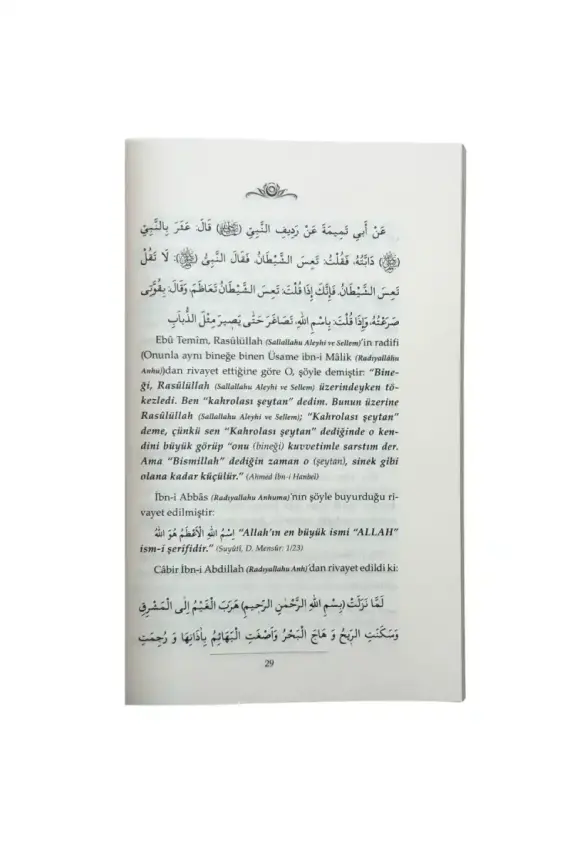 عَنْ أَبِي تَمِيمَةَ عَنْ رَدِيفِ النَّبِيِّ (ﷺ) قَالَ: عَثَرَ بِالنَّبِيِّ
(ﷺ) دَابَّتُهُ، فَقُلْتُ: تَعِسَ الشَّيْطَانُ، فَقَالَ النَّبِيُّ (ﷺ): لَا تَقُلْ
تَعِسَ الشَّيْطَانُ، فَإِنَّكَ إِذَا قُلْتَ: تَعِسَ الشَّيْطَانُ تَعَاظَمَ، وَقَالَ: بِقُوَّتِي
صَرَعْتُهُ، وَإِذَا قُلْتَ: بِاسْمِ اللهِ، تَصَاغَرَ حَتَّى يَصِيرَ مِثْلَ الذُّبَابِ
Ebû Temîm, Rasûlüllah (Sallallahu Aleyhi ve Sellem)'in radifi
(Onunla aynı bineğe binen Üsame ibn-i Mâlik (Radıyallâhu
Anhu)dan rivayet ettiğine göre O, şöyle demiştir: "Bine-
ği, Rasûlüllah (Sallallahu Aleyhi ve Sellem) üzerindeyken tö-
kezledi. Ben "kahrolası şeytan" dedim. Bunun üzerine
Rasûlüllah (Sallallahu Aleyhi ve Sellem); "Kahrolası şeytan"
deme, çünkü sen "Kahrolası şeytan" dediğinde o ken-
dini büyük görüp "onu (bineği) kuvvetimle sarstım der.
Ama "Bismillah" dediğin zaman o (şeytan), sinek gibi
olana kadar küçülür." (Ahmed İbn-i Hanbel)
İbn-i Abbâs (Radıyallahu Anhuma)'nın şöyle buyurduğu ri-
vayet edilmiştir:
اِسْمُ اللهِ الْأَعْظَمُ هُوَ اللهُ "Allah'ın en büyük ismi "ALLAH"
ism-i şerifidir." (Suyûtî, D. Mensûr: 1/23)
Câbir İbn-i Abdillah (Radıyallahu Anh)'dan rivayet edildi ki:
لَمَّا نَزَلَتْ (بِسْمِ اللهِ الرَّحْمٰنِ الرَّحِيمِ) هَرَبَ الْغَيْمُ إِلَى الْمَشْرِقِ
وَسَكَنَتِ الرِّيحُ وَ هَاجَ الْبَحْرُ وَأَصْغَتِ الْبَهَائِمُ بِأَذَانِهَا وَ رُجِمَتِ
29